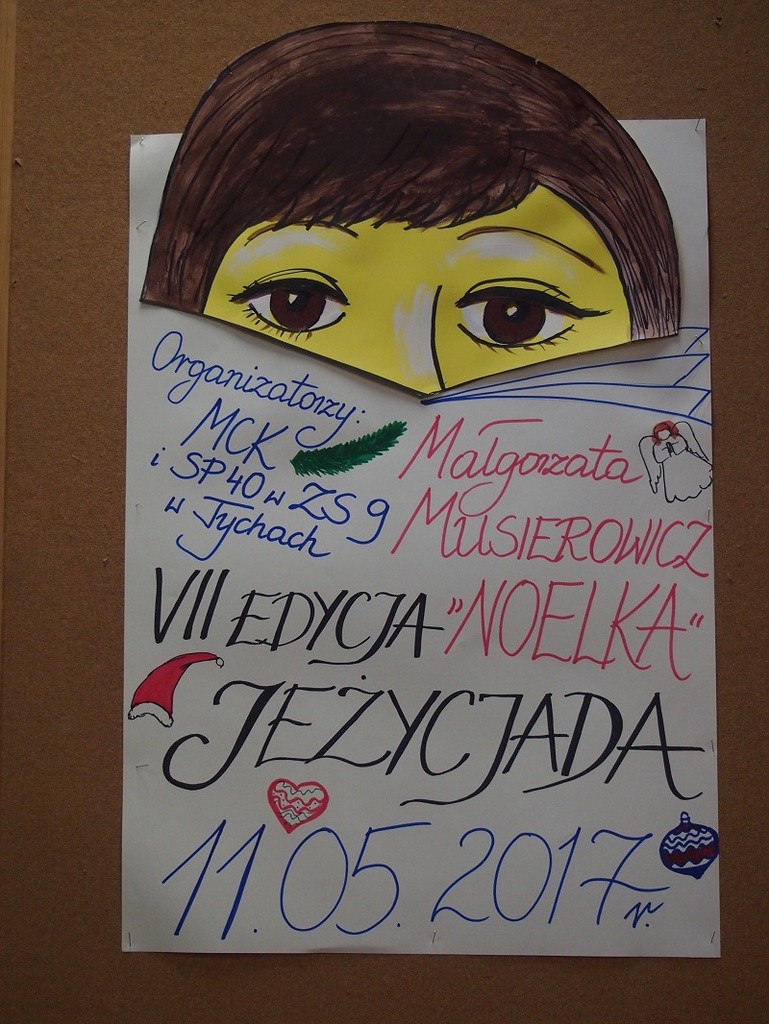 Organizatorzy:
MCK
i SP40 w ZS 9
w Tychach
Małgorzata
MUSIEROWICZ
VII EDYCJA "NOELKA"
JEŻYCJADA
11.05.2017 r.